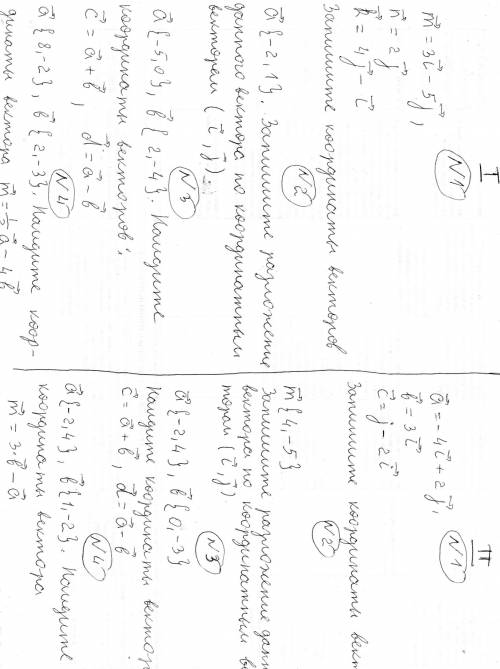 I
№1
m⃗ = 3i⃗ - 5j⃗,
n⃗ = 2j⃗
k⃗ = 4j⃗ - i⃗
Запишите координаты векторов
№2
a⃗ {-2, 1}. Запишите разложение
данного вектора по координатным
векторам (i⃗, j⃗)
№3
a⃗ {-5, 0}, b⃗ {2, -4}. Найдите
координаты векторов:
c⃗ = a⃗ + b⃗, d⃗ = a⃗ - b⃗
№4
a⃗ {8, -2}, b⃗ {2, -3}. Найдите коор-
динаты вектора m⃗ = ½a⃗ - 4b⃗
II
№1
a⃗ = -4i⃗ + 2j⃗,
b⃗ = 3i⃗
c⃗ = j⃗ - 2i⃗
Запишите координаты вект
№2
m⃗ {4, -5}
Запишите разложение дан
вектора по координатным в
торам (i⃗, j⃗)
№3
a⃗ {-2, 4}, b⃗ {0, -3}
Найдите координаты вектор
c⃗ = a⃗ + b⃗, d⃗ = a⃗ - b⃗
№4
a⃗ {-2, 4}, b⃗ {1, -2}. Найдите
координаты вектора
m⃗ = 3·b⃗ - a⃗